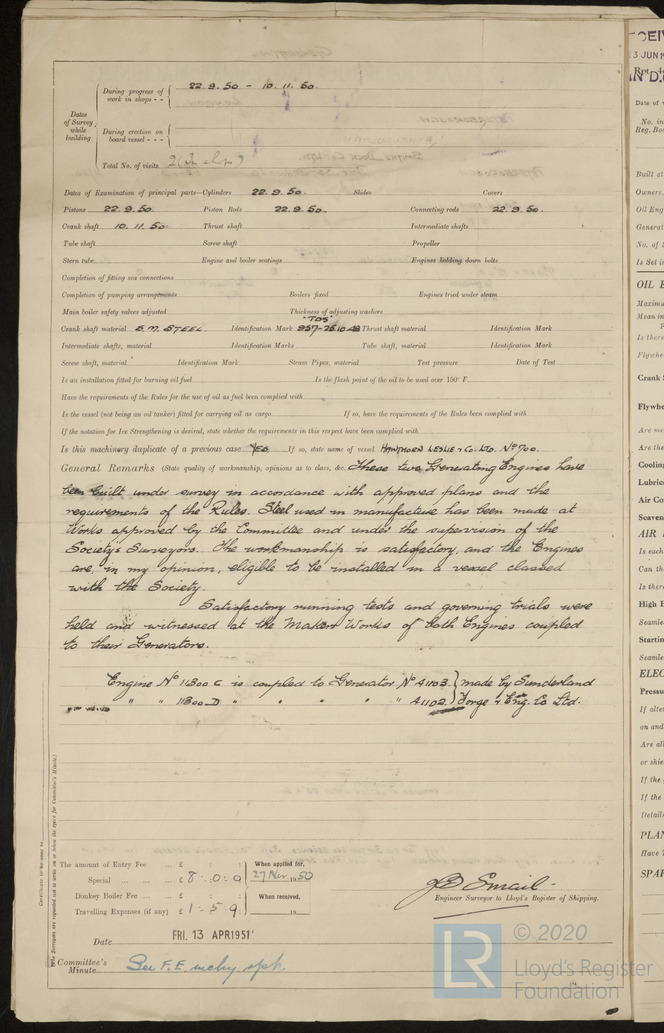 Dates of Survey while building
During progress of work in shops - -
22.9.50 - 10.11.50.
During erection on board vessel - - -
Total No. of visits 2 (at shops)
Dates of Examination of principal parts—Cylinders 22.9.50. Slides Covers
Pistons 22.9.50. Piston Rods 22.9.50. Connecting rods 22.9.50.
Crank shaft 10.11.50. Thrust shaft Intermediate shafts
Tube shaft Screw shaft Propeller
Stern tube Engine and boiler seatings Engines holding down bolts
Completion of fitting sea connections
Completion of pumping arrangements Boilers fixed Engines tried under steam
Main boiler safety valves adjusted Thickness of adjusting washers
Crank shaft material S.M. STEEL. Identification Mark Thrust shaft material Identification Mark
Intermediate shafts, material Identification Marks Tube shaft, material Identification Mark
Screw shaft, material Identification Mark Steam Pipes, material Test pressure Date of Test
Is an installation fitted for burning oil fuel Is the flash point of the oil to be used over 150° F.
Have the requirements of the Rules for the use of oil as fuel been complied with
Is the vessel (not being an oil tanker) fitted for carrying oil as cargo If so, have the requirements of the Rules been complied with
If the notation for Ice Strengthening is desired, state whether the requirements in this respect have been complied with
Is this machinery duplicate of a previous case YES If so, state name of vessel HAWTHORN LESLIE & Co. LTD. No 700.
General Remarks (State quality of workmanship, opinions as to class, &c. These two Generating Engines have
been built under survey in accordance with approved plans and the
requirements of the Rules. Steel used in manufacture has been made at
Works approved by the Committee and under the supervision of the
Society's Surveyors. The workmanship is satisfactory, and the Engines
are, in my opinion, eligible to be installed in a vessel classed
with the Society.
Satisfactory running tests and governing trials were
held and witnessed at the Makers Works of both Engines coupled
to their Generators.
Engine No 11300 C is coupled to Generator No A1103. } made by Sunderland
" " 11300 D " " " " " A1102. } Forge & Eng. Co Ltd.
The amount of Entry Fee ... £ : :
Special ... ... ... £ 8 : 0 : 0
Donkey Boiler Fee ... ... £ : :
Travelling Expenses (if any) £ 1 : 5 : 9
When applied for,
27 Nov 1950
When received,
19
Engineer Surveyor to Lloyd's Register of Shipping.
Date FRI. 13 APR 1951
Committee's Minute See F.E. mchy rpt.
© 2020
LR
Lloyd's Register
Foundation
3 JUN
Date of
No. in
Reg. Boo
Built at
Owners
Oil Eng
Generat
No. of
Is Set i
OIL E
Maximu
Mean in
Is there
Flywhe
Crank
Flywhe
Are me
Are the
Cooling
Lubric
Air Co
Scaven
AIR
Is each
Can th
Is there
High P
Seamle
Startin
Seamle
ELEC
Pressu
If alte
on and
Are all
or shie
If the
If the
Detail
PLAN
Have
SPAR